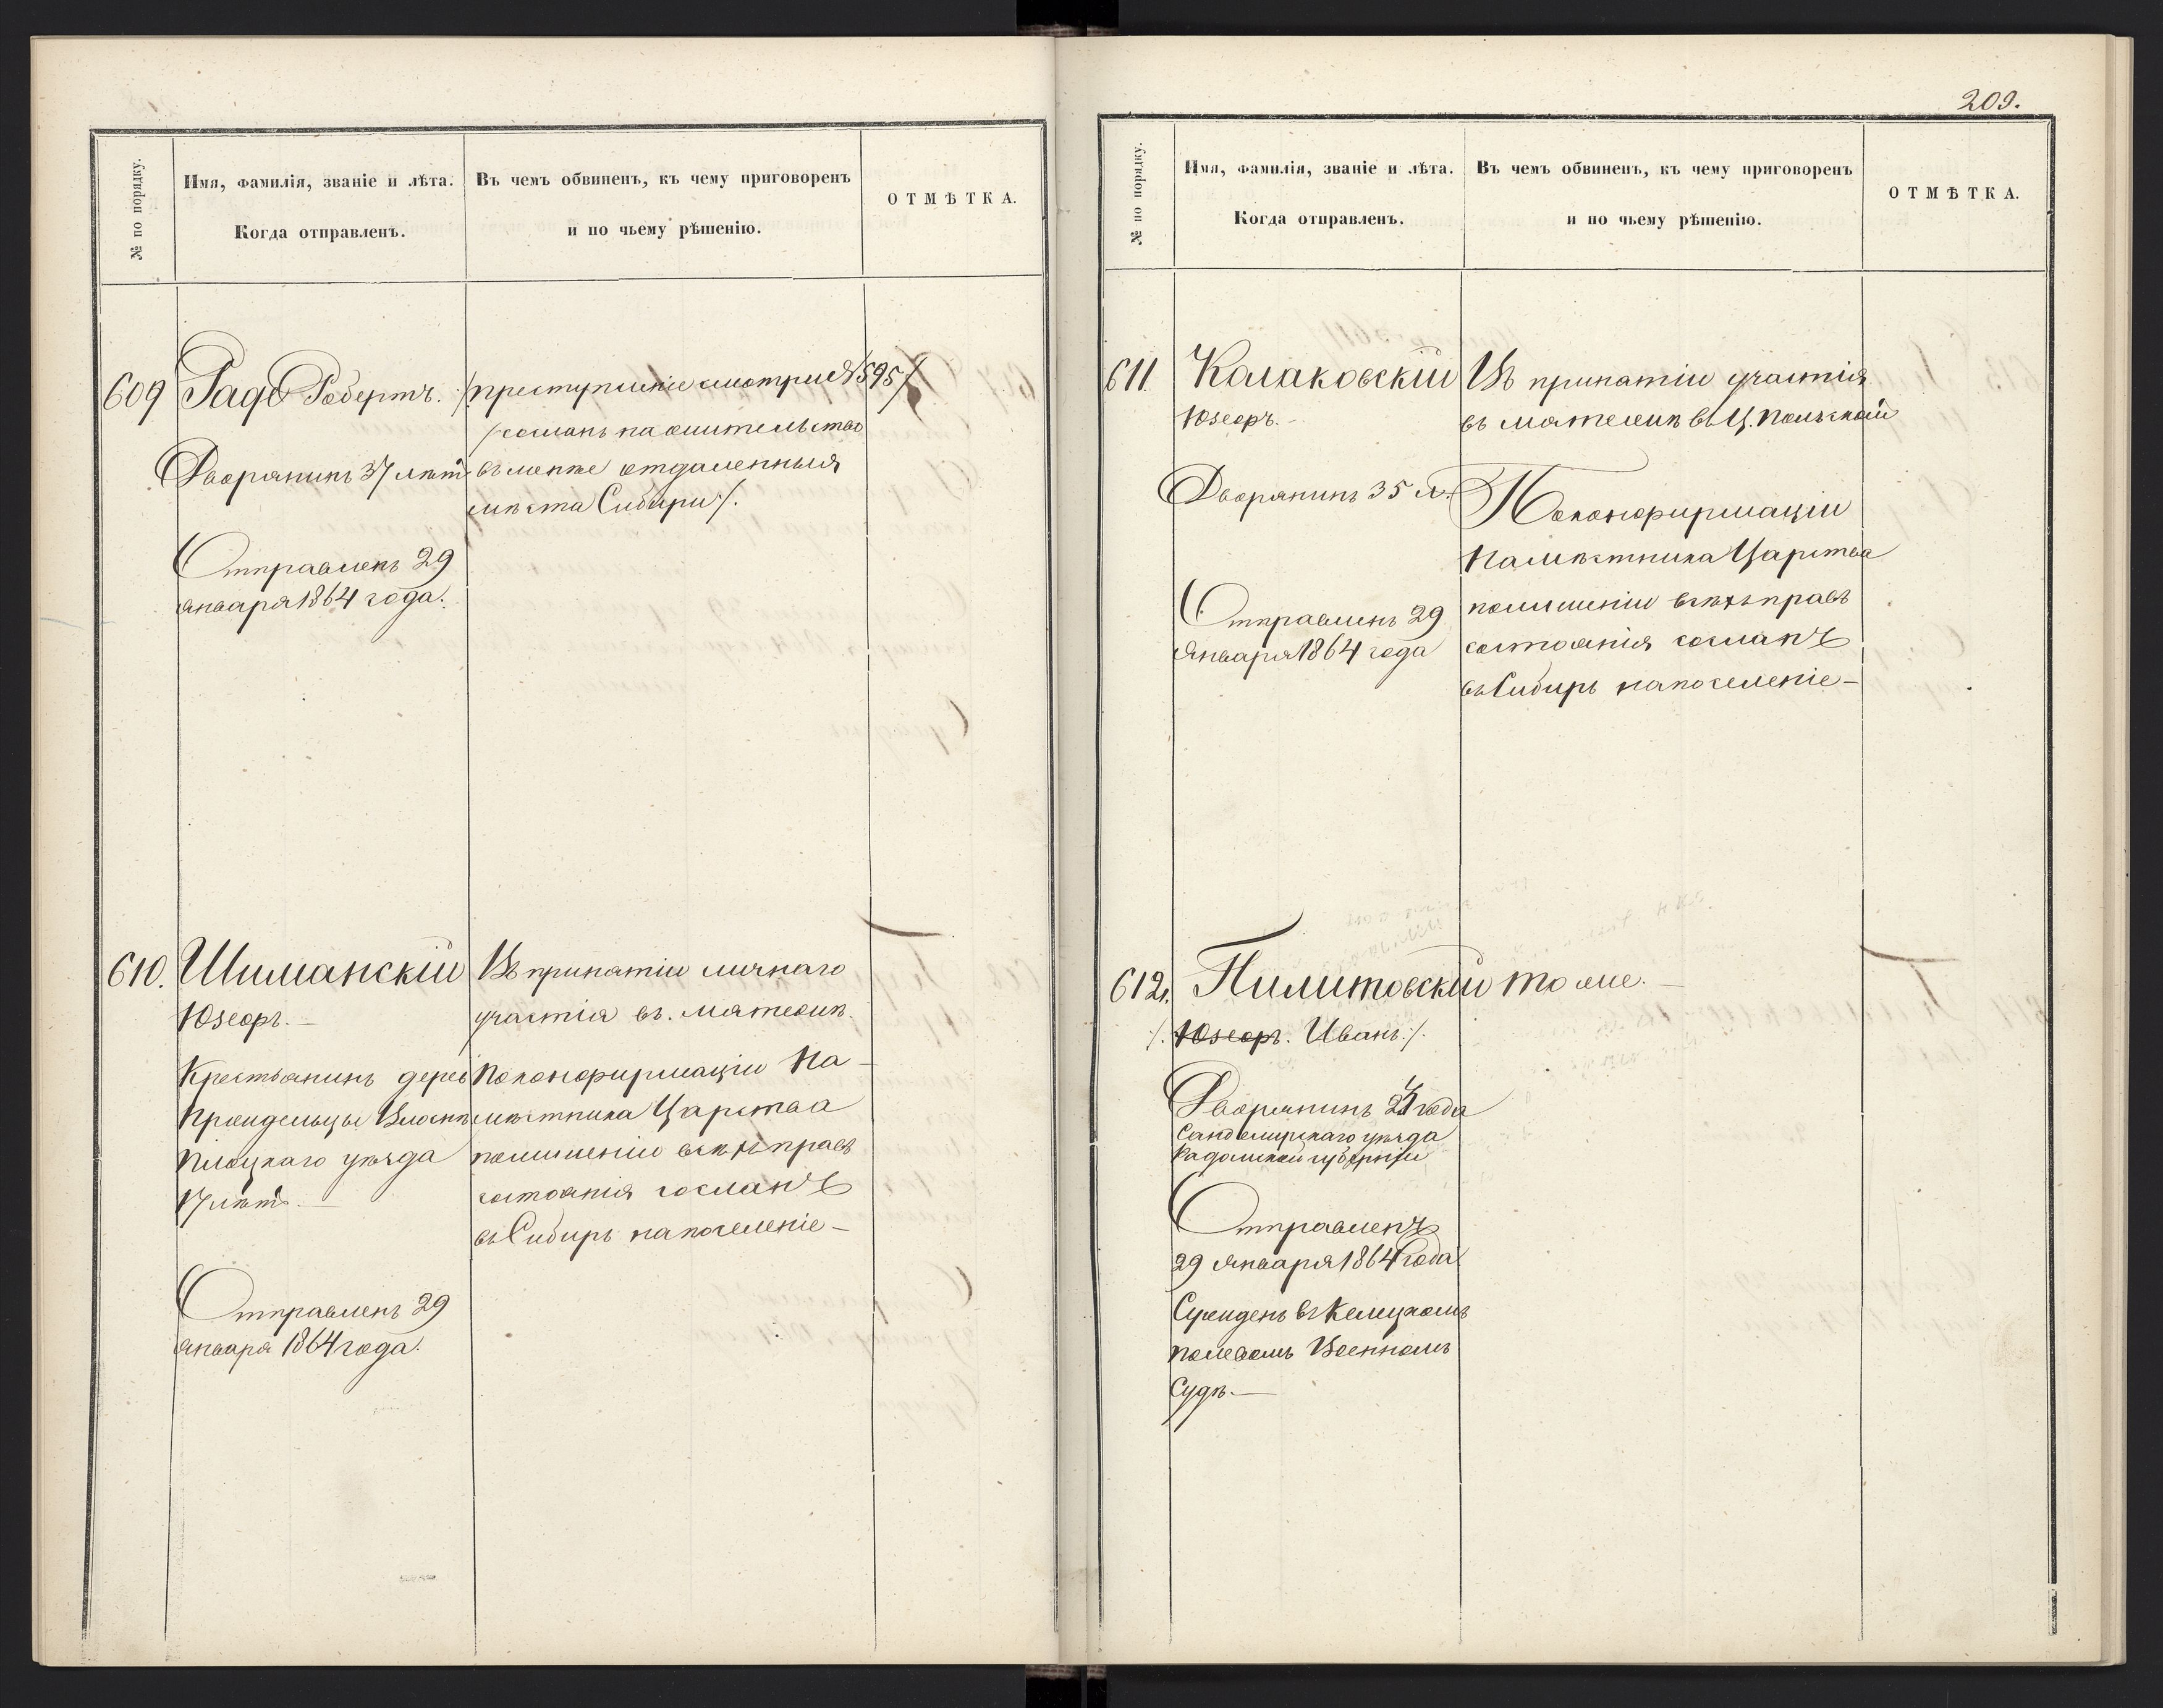 № по порядку.
Имя, фамилія, званіе и лѣта.
Когда отправленъ.
Въ чемъ обвиненъ, къ чему приговоренъ
и по чьему рѣшенію.
ОТМѢТКА.
609
Радо Робертъ.
Дворянинъ 37 лѣтъ
Отправленъ 29
января 1864 года.
/преступленіе смотри № 595/
/сосланъ на жительство
въ менѣе отдаленныя
мѣста Сибири/.
610.
Шиманскій
Юзефъ.—
Крестьянинъ
Плоцкаго уѣзда
17 лѣтъ.—
Отправленъ 29
января 1864 года.
Въ принятіи личнаго
участія въ. мятежѣ.
По конфирмаціи На-
мѣстника Царства
по лишеніи всѣхъ правъ
состоянія сосланъ
въ Сибирь на поселеніе—
209.
№ по порядку.
Имя, фамилія, званіе и лѣта.
Когда отправленъ.
Въ чемъ обвиненъ, къ чему приговоренъ
и по чьему рѣшенію.
ОТМѢТКА.
611.
Колаковскій
Юзефъ.—
Дворянинъ 35 л.
Отправленъ 29
Января 1864 года
Въ принятіи участія
въ мятежѣ въ Ц. Польскомъ
По конфирмаціи
Намѣстника Царства
по лишеніи всѣхъ правъ
состоянія сосланъ
въ Сибирь на поселеніе—
612.
Пилитовскій
то же.—
/. Юзефъ. Иванъ./.
Дворянинъ года
Сандомирскаго уѣзда
Радомской губерніи
Отправленъ
29 Января 1864 года
Сужденъ въ Келецкомъ
полевомъ Военномъ
Судѣ.—